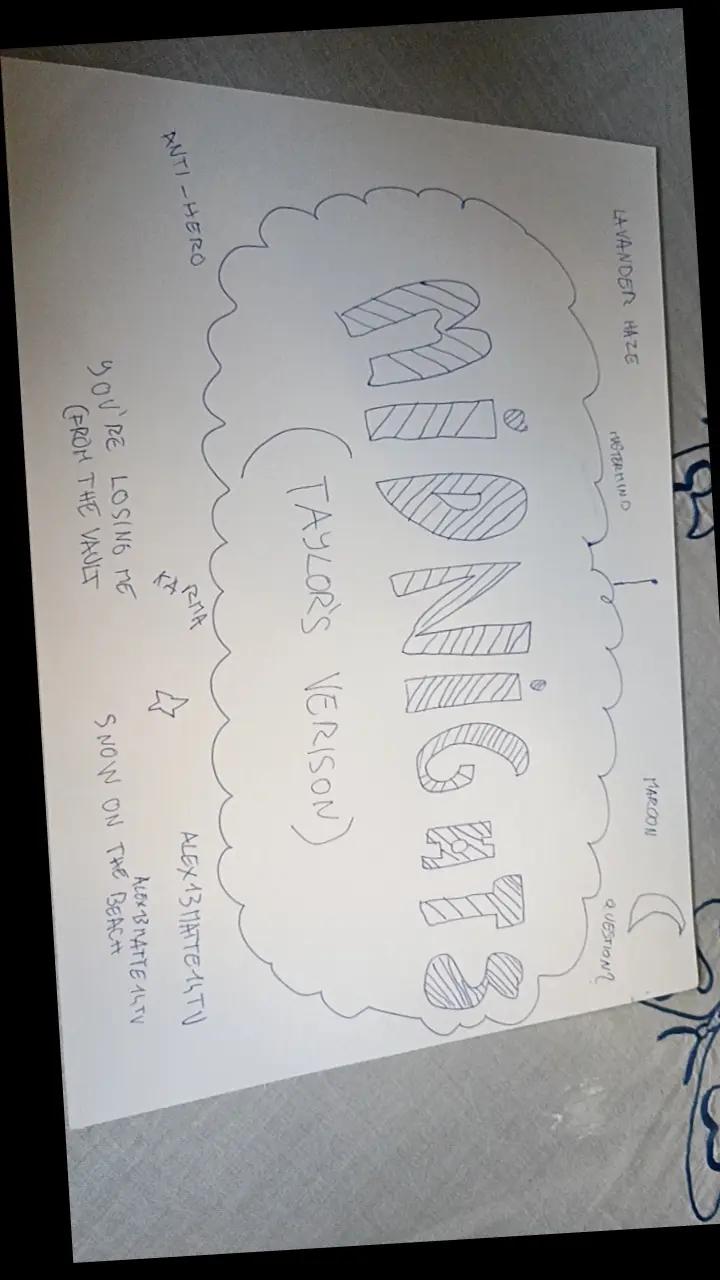 LAVANDER HAZE
MASTERMIND
MAROON
QUESTION?
MIDNIGHTS
(TAYLOR'S VERISON)
ANTI-HERO
YOU'RE LOSING ME
(FROM THE VAULT
ALEX13MATTE14TV
ALEX13MATTE14TV
SNOW ON THE BEACH